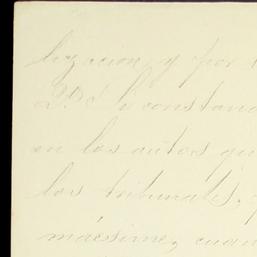 lizacion, y por
constanc
en los autos qu
los tribunales,
máxime, cuan